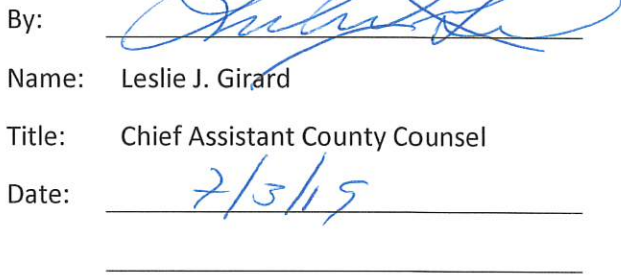 By:
Name: Leslie J. Girard
Title: Chief Assistant County Counsel
Date: 7/3/19